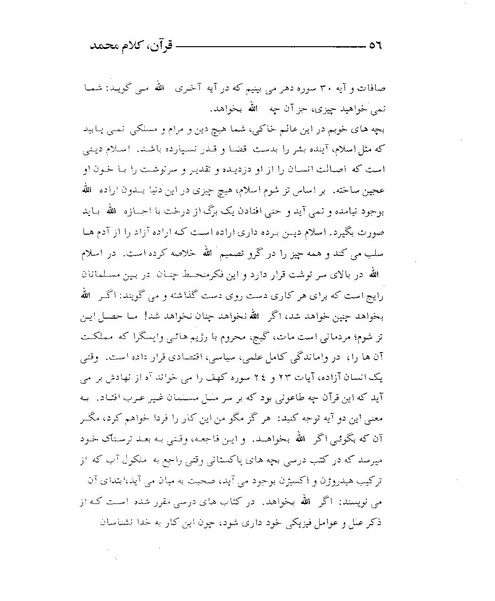 ۵۶ قرآن، کلام محمد
صافات و آیه ۳۰ سوره دهر می بینیم که در آیه آخری الله می گوید: شما
نمی خواهید چیزی، جز آن چه الله بخواهد.
بچه های خوبم در این عالم خاکی، شما هیچ دین و مرام و مسلکی نمی یابید
که مثل اسلام، آینده بشر را بدست قضا و قدر نسپارده باشد. اسلام دینی
است که اصالت انسان را از او دزدیده و تقدیر و سرنوشت را با خون او
عجین ساخته. بر اساس تز شوم اسلام، هیچ چیزی در این دنیا بدون اراده الله
بوجود نیامده و نمی آید و حتی افتادن یک برگ از درخت با اجازه الله باید
صورت بگیرد. اسلام دین برده داری اراده است که اراده آزاد را از آدم ها
سلب می کند و همه چیز را در گرو تصمیم الله خلاصه کرده است. در اسلام
الله در بالای سر نوشت قرار دارد و این فکرمنحط چنان در بین مسلمانان
رایج است که برای هر کاری دست روی دست گذاشته و می گویند: اگر الله
بخواهد چنین خواهد شد، اگر الله نخواهد چنان نخواهد شد! ما حصل این
تز شوم؛ مردمانی است مات، گیج، محروم با رژیم هائی واپسگرا که مملکت
آن ها را، در واماندگی کامل علمی، سیاسی، اقتصادی قرار داده است. وقتی
یک انسان آزاده، آیات ۲۳ و ۲۴ سوره کهف را می خواند آه از نهادش بر می
آید که این قرآن چه طاعونی بود که بر سر ملل مسلمان غیر عرب افتاد. به
معنی این دو آیه توجه کنید: هر گز مگو من این کار را فردا خواهم کرد، مگر
آن که بگوئی اگر الله بخواهد. و این فاجعه، وقتی به بعد ترسناک خود
میرسد که در کتب درسی بچه های پاکستانی وقتی راجع به ملکول آب که از
ترکیب هیدروژن و اکسیژن بوجود می آید، صحبت به میان می آید، ابتدای آن
می نویسند: اگر الله بخواهد. در کتاب های درسی مقرر شده است که از
ذکر علل و عوامل فیزیکی خود داری شود، چون این کار به خدا نشناسان